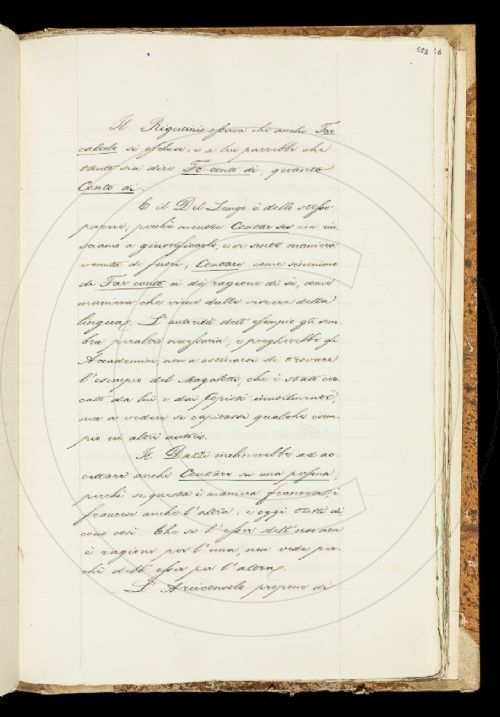 558 16
Il Rigutini osserva che anche Far
calcolo si escluse; e a lui parrebbe che
tanto sia dire Fo conto di, quanto
Conto di.
E il Del Lungo è dello stesso
parere, perchè mentre Contar su non riu-
sciamo a giustificarlo, e si sente maniera
venuta di fuori, Contare come sinonimo
di Far conto ci dà ragione di sè, come
maniera che viene dalle viscere della
lingua. L'autorità dell'esempio gli sem-
bra peraltro necessaria, e pregherebbe gli
Accademici non a ostinarsi di trovare
l'esempio del Magalotti, che è stato cer-
cato da lui e dai Copisti inutilmente,
ma a vedere se capitasse qualche esem-
pio in altri autori.
Il Dazzi inclinerebbe ad ac-
cettare anche Contare su una persona,
perchè se questa è maniera francese, è
francese anche l'altra, e oggi tutti di-
cono così. Che se l'esser dell'uso non
è ragione per l'una, non vede per-
chè debb'esser per l'altra.
L'Arciconsolo propone di